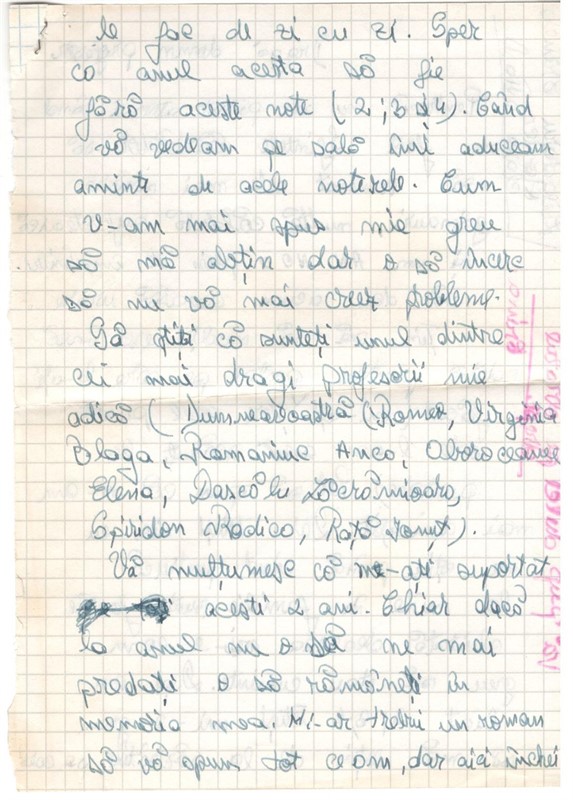 le fac de zi cu zi. Sper
ca anul acesta să fie
fără aceste note (2; 3 și 4). Când
vă vedeam pe sală îmi aduceam
aminte de acele noterele. Cum
v-am mai spus mie greu
să mă abțin dar o să încerc
să nu vă mai creez probleme.
Să știți că sunteți unul dintre
cei mai dragi profesorii mie
adică (Dumneavoastră (Romeo, Virginia
Blaga, Romaniuc Anca, Oboroceanu
Elena, Dascălu Lăcrămioara,
Spiridon Rodica, Rață Ionuț).
Vă mulțumesc că m-ați suportat
acești 2 ani. Chiar dacă
la anul nu o să ne mai
predați o să rămâneți în
memoria mea. Mi-ar trebui un roman
să vă spun tot ce am, dar aici închei